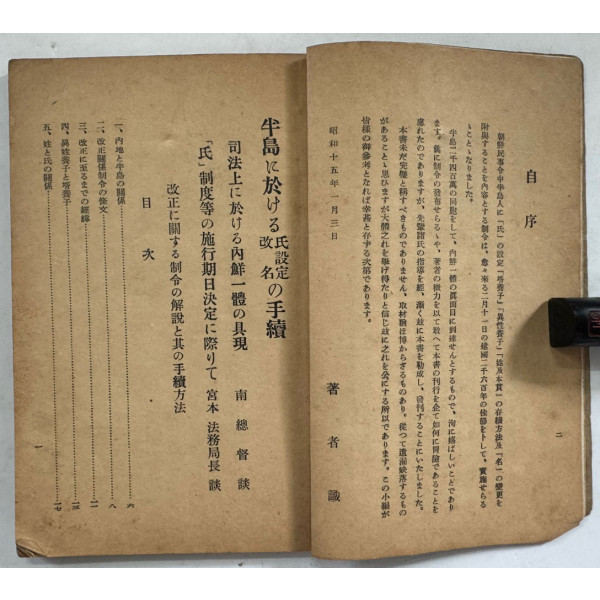 自序
朝鮮民事令中半島人に「氏」の設定「壻養子」「異姓養子」「姓及本貫」の存續方法及「名」の變更を
附與することを內容とする制令は、愈々來る二月十一日の建國二千六百年の佳節を卜して、實施せらる
ゝことゝなりました。
半島二千四百萬の同胞をして、內鮮一體の眞面目に到達せんとするもので、洵に嬉ばしいことであり
ます。旣に制令の發布せらるゝや、著者の微力を以て敢へて本書の刊行を企て如何に冒險であることを
慮れたのでありますが、先輩諸氏の指導を經、漸く玆に本書を勒成し、發刊することにいたしました。
本書未だ完璧と稱すべきものでありません、取材敢て博からざるものあり、從つて遺漏缺落するもの
があることゝ思ひますが大體之れを擧げ得たりと信じ玆に之れを公にする所以であります。この小編が
皆樣の御參考となれば幸甚と存ずる次第であります。
昭和十五年一月三日
著者識
二
半島に於ける氏設定改名の手續
司法上に於ける內鮮一體の具現 南總督談
「氏」制度等の施行期日決定に際りて 宮本法務局長談
改正に關する制令の解說と其の手續方法
目次
一、內地と半島の關係 六
二、改正關係制令の條文 八
三、改正に至るまでの經緯 一一
四、異姓養子と壻養子 一三
五、姓と氏の關係 一七
一